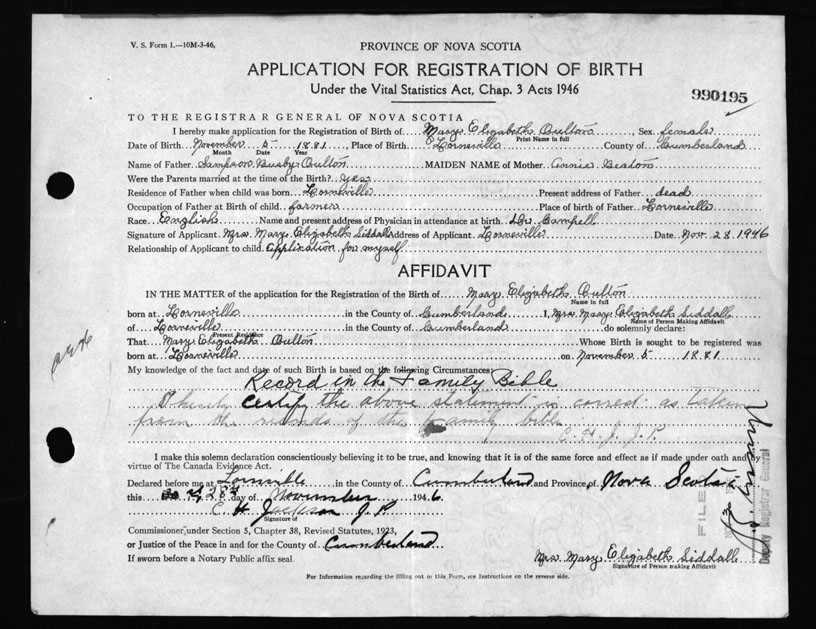 V. S. Form 1.—10M-3-46.
PROVINCE OF NOVA SCOTIA
APPLICATION FOR REGISTRATION OF BIRTH
Under the Vital Statistics Act, Chap. 3 Acts 1946
990195
TO THE REGISTRAR GENERAL OF NOVA SCOTIA
I hereby make application for the Registration of Birth of Mary Elizabeth Oulton, Sex female
Print Name in full
Date of Birth November 5 1881, Place of Birth Lorneville County of Cumberland
Month Date Year
Name of Father Sampson Busby Oulton MAIDEN NAME of Mother Annie Beaton
Were the Parents married at the time of the Birth? yes
Residence of Father when child was born Lorneville Present address of Father dead
Occupation of Father at Birth of child farmer Place of Birth of Father Lorneville
Race English Name and present address of Physician in attendance at birth Dr. Campell
Signature of Applicant Mrs. Mary Elizabeth Siddall Address of Applicant Lorneville Date Nov. 28 1946
Relationship of Applicant to child Application for myself
AFFIDAVIT
IN THE MATTER of the application for the Registration of the Birth of Mary Elizabeth Oulton
Name in full
born at Lorneville in the County of Cumberland I, Mrs Mary Elizabeth Siddall
Name of Person Making Affidavit
of Lorneville in the County of Cumberland do solemnly declare:
Present Residence
That Mary Elizabeth Oulton Whose Birth is sought to be registered was
born at Lorneville on November 5 1881
My knowledge of the fact and date of such Birth is based on the following Circumstances
Record in the Family Bible
I hereby certify the above statement is correct as taken
from the records of the family bible
C. H. J. J. P.
I make this solemn declaration conscientiously believing it to be true, and knowing that it is of the same force and effect as if made under oath and by
virtue of The Canada Evidence Act.
Declared before me at Lorneville in the County of Cumberland and Province of Nova Scotia
this 28 day of November 1946
C H Jackson J P
Signature of
Commissioner under Section 5, Chapter 38, Revised Statutes, 1923,
or Justice of the Peace in and for the County of Cumberland
If sworn before a Notary Public affix seal.
Mrs. Mary Elizabeth Siddall
Signature of Person making Affidavit
For Information regarding the filling out of this Form, see Instructions on the reverse side.
FILE
Deputy Registrar General